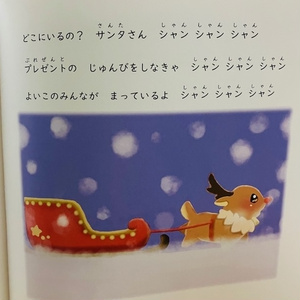 どこにいるの？ サンタさん シャン シャン シャン
プレゼントの じゅんびをしなきゃ シャン シャン シャン
よいこのみんなが まっているよ シャン シャン シャン